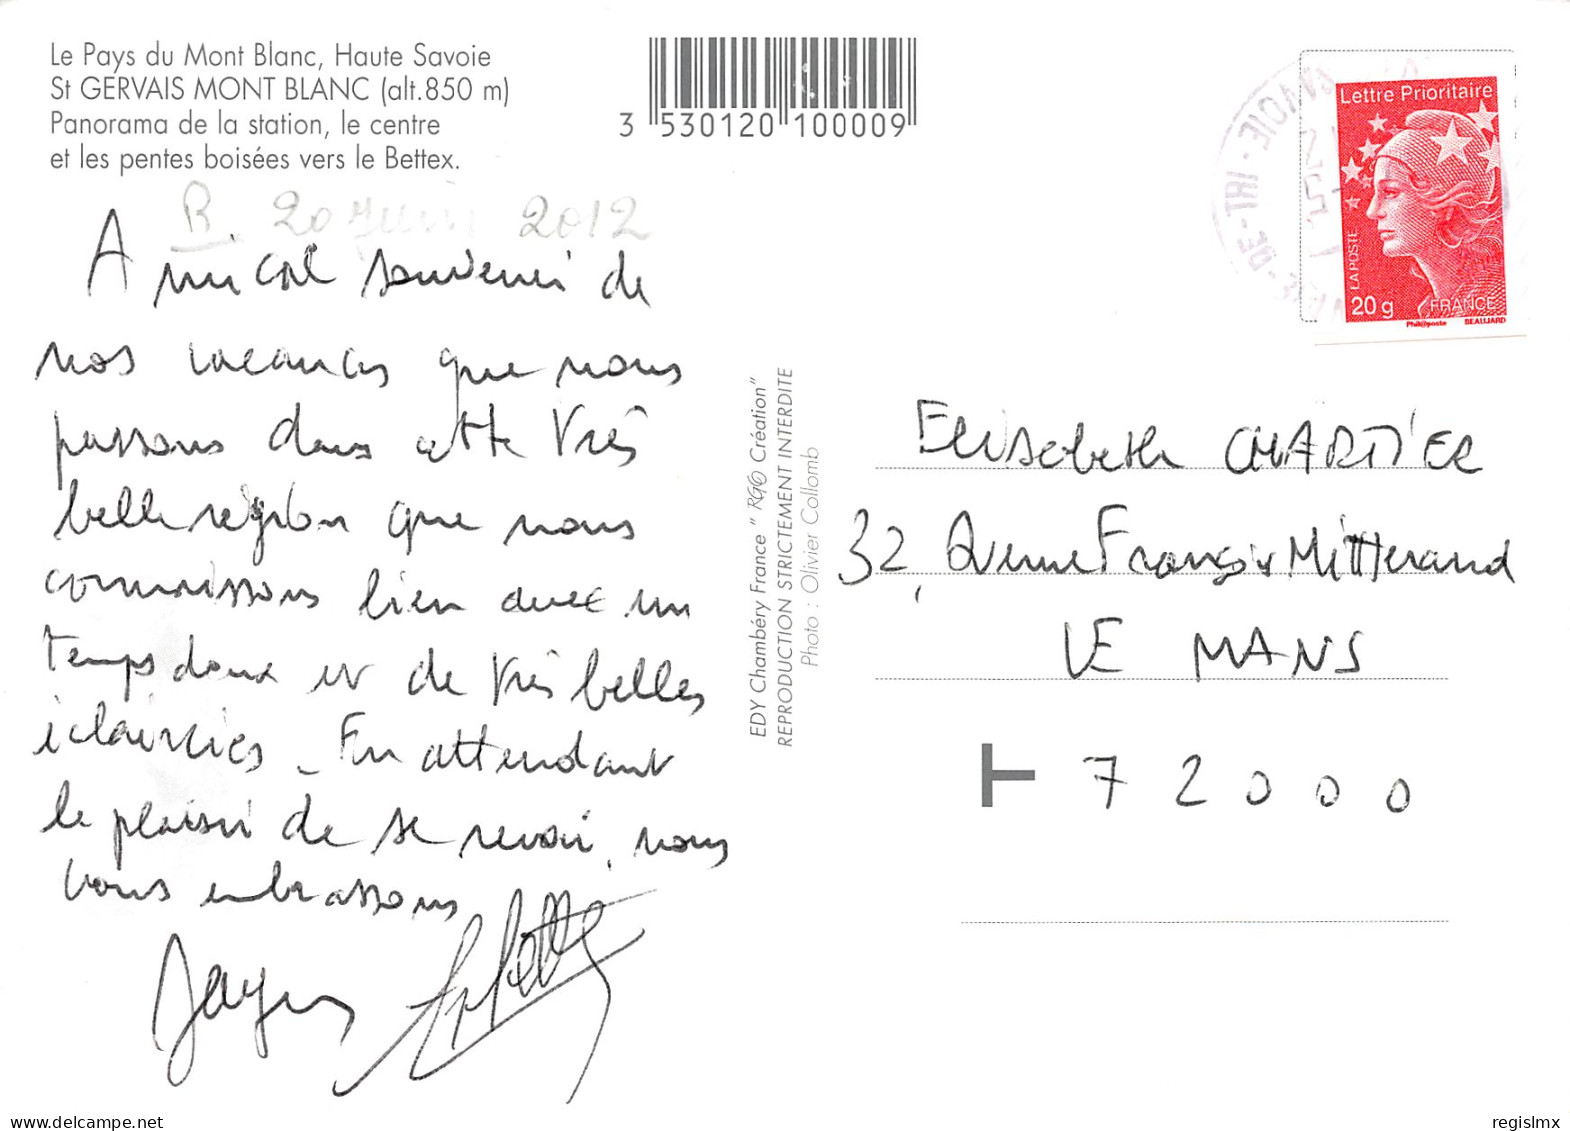 Le Pays du Mont Blanc, Haute Savoie
St GERVAIS MONT BLANC (alt.850 m)
Panorama de la station, le centre
et les pentes boisées vers le Bettex.
3 530120 100009
R. 20 juin 2012
Amical souvenir de
nos vacances que nous
passons dans cette très
belle région que nous
connaissons bien avec un
temps doux et de très belles
éclaircies. En attendant
le plaisir de se revoir, nous
vous embrassons
Jacques
EDY Chambéry France " RGO Création"
REPRODUCTION STRICTEMENT INTERDITE
Photo : Olivier Collomb
DE - TRI - SAVOIE
Lettre Prioritaire
LA POSTE
20 g FRANCE
Phil@poste BEAUJARD
Elisabeth CHARTIER
32, Avenue François Mitterand
LE MANS
72000
www.delcampe.net
regislmx